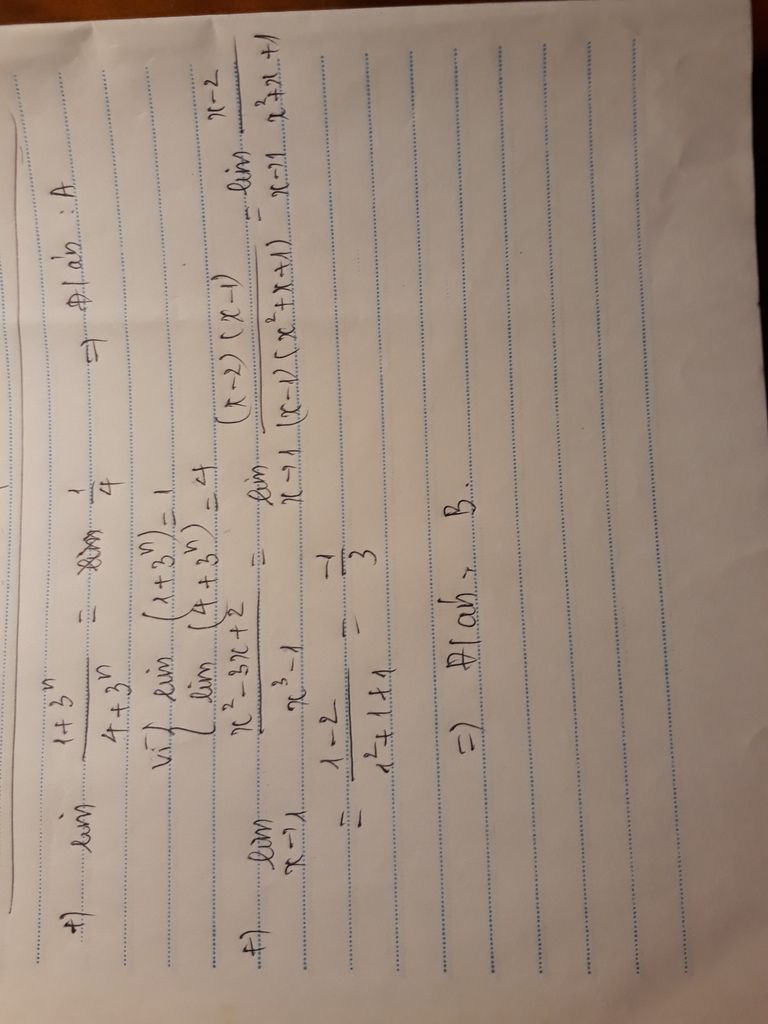 +) lim \frac{1+3^n}{4+3^n} = \frac{1}{4} => Đ/án : A
vì { lim (1+3^n) = 1
lim (4+3^n) = 4
+) lim_{x→1} \frac{x^2-3x+2}{x^3-1} = lim_{x→1} \frac{(x-2)(x-1)}{(x-1)(x^2+x+1)} = lim_{x→1} \frac{x-2}{x^2+x+1}
= \frac{1-2}{1^2+1+1} = \frac{-1}{3}
=> Đ/án, B.